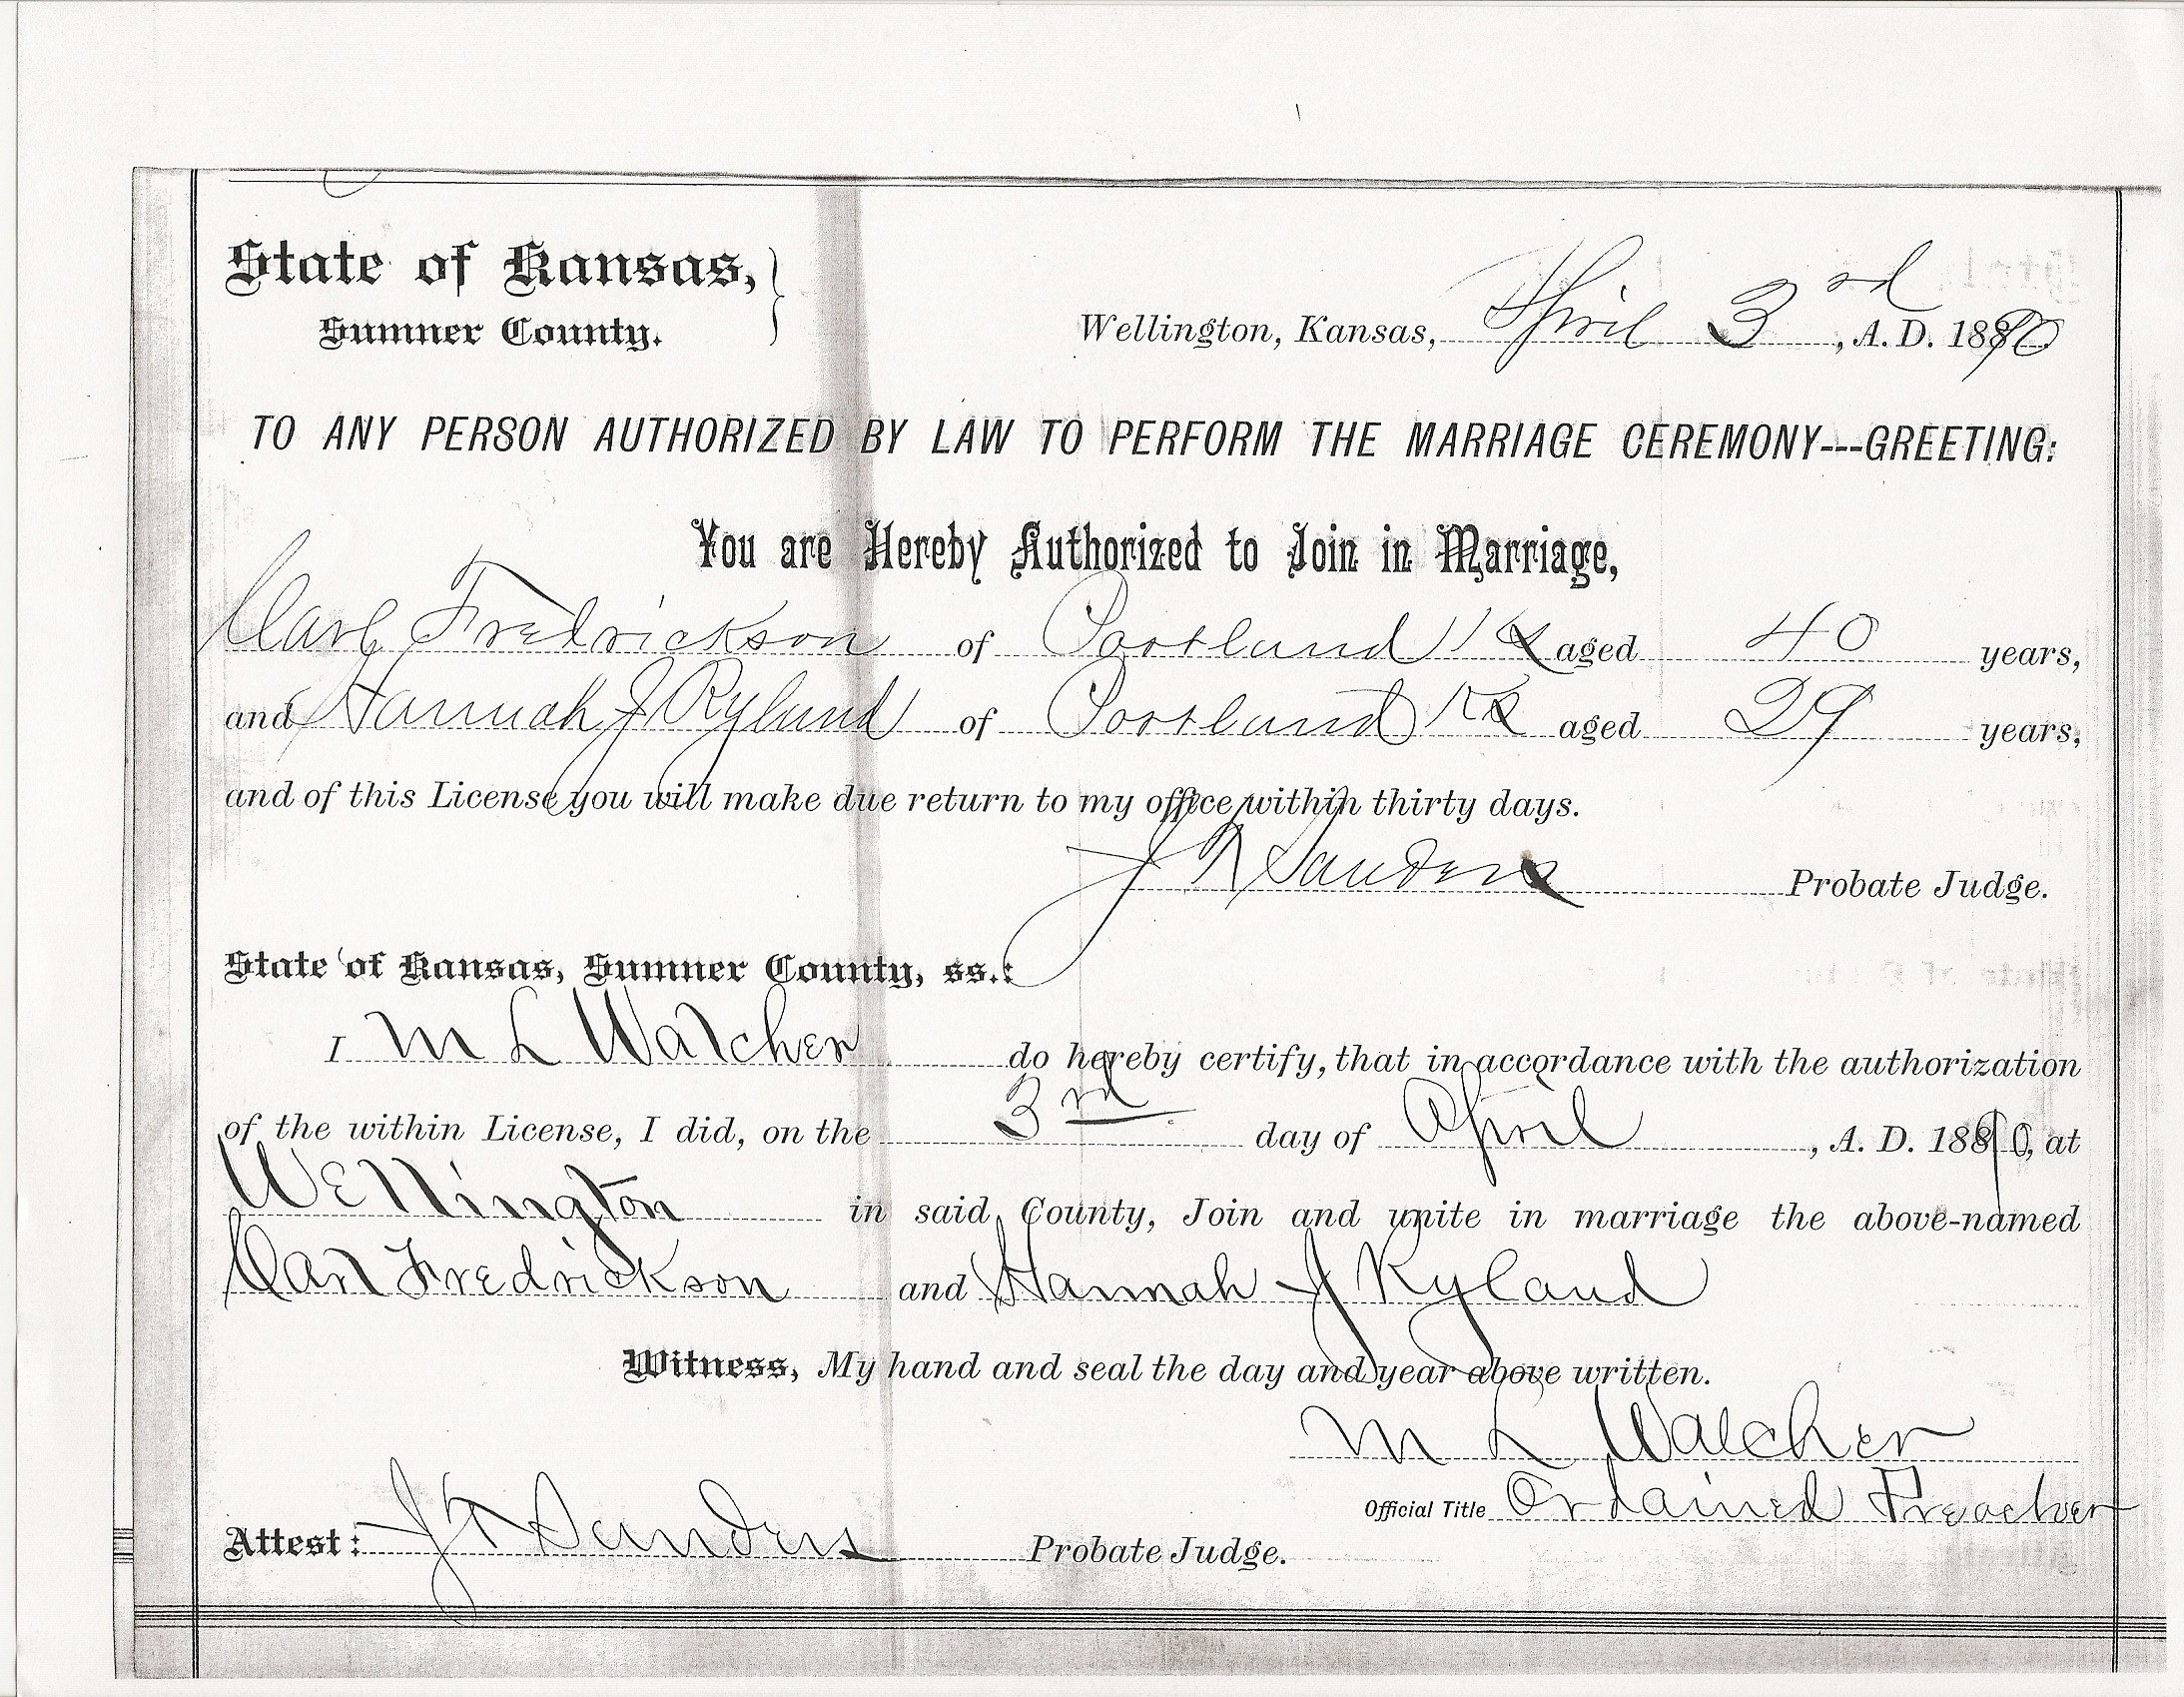 State of Kansas,
Sumner County.
Wellington, Kansas, April 3rd, A. D. 1890
TO ANY PERSON AUTHORIZED BY LAW TO PERFORM THE MARRIAGE CEREMONY---GREETING:
You are Hereby Authorized to Join in Marriage,
Carl Fredrickson of Portland Ks aged 40 years,
and Hannah J Ryland of Portland Ks aged 29 years,
and of this License you will make due return to my office within thirty days.
J T Sanders Probate Judge.
State of Kansas, Sumner County, ss.:
I M L Walcher do hereby certify, that in accordance with the authorization
of the within License, I did, on the 3rd day of April, A. D. 1890, at
Wellington in said County, Join and unite in marriage the above-named
Carl Fredrickson and Hannah J Ryland
Witness, My hand and seal the day and year above written.
M L Walcher
Official Title Ordained Preacher
Attest: J T Sanders Probate Judge.